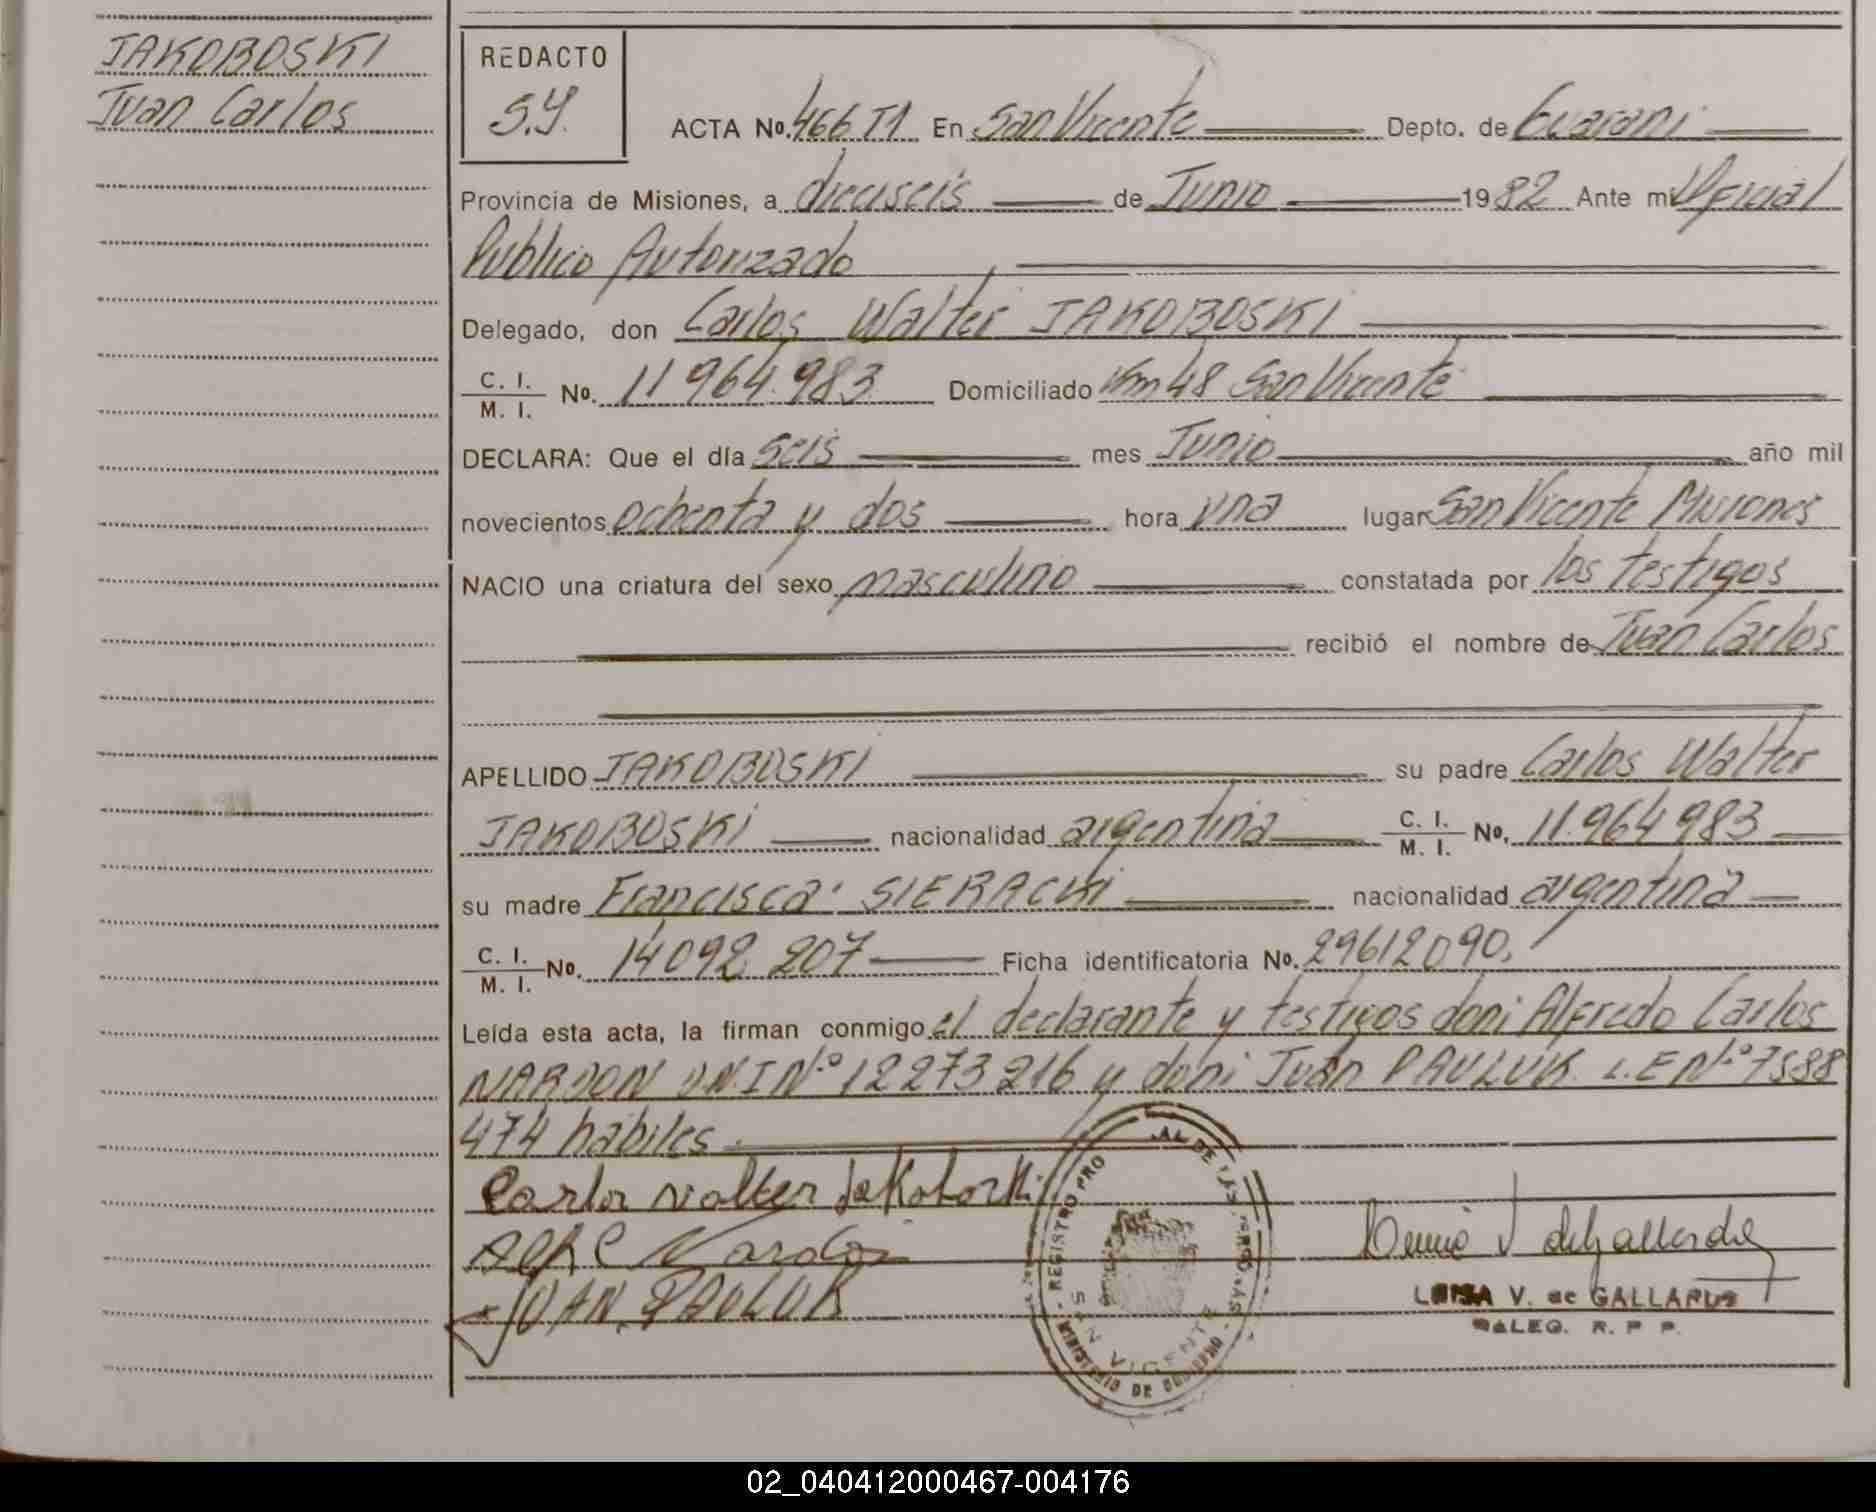 JAKOBOSKI
Juan Carlos
REDACTO
S.Y.
ACTA No. 466 T1 En San Vicente Depto. de Guarani
Provincia de Misiones, a dieciseis de Junio 1982 Ante mi Oficial
Publico Autorizado,
Delegado, don Carlos Walter JAKOBOSKI
C. I. / M. I. No. 11 964.983 Domiciliado Km 48 San Vicente
DECLARA: Que el día seis mes Junio año mil
novecientos ochenta y dos hora una lugar San Vicente Misiones
NACIO una criatura del sexo masculino constatada por los testigos
recibió el nombre de Juan Carlos
APELLIDO JAKOBOSKI su padre Carlos Walter
JAKOBOSKI nacionalidad argentina C. I. / M. I. No. 11.964 983
su madre Francisca SIERACKI nacionalidad argentina
C. I. / M. I. No. 14092 207 Ficha identificatoria No. 29612090.
Leída esta acta, la firman conmigo el declarante y testigos don: Alfredo Carlos
NARDON D.N.I Nº 12273216 y don: Juan PAULUK L.E Nº 7588
474 habiles
Carlos Walter Jakoboski
Alf C Nardon
JUAN PAULUK
REGISTRO PRO AL DE LAS PERSONAS
SAN VICENTE
MINISTERIO DE GOBIERNO
LUISA V. de GALLARDO
DELEG. R. P. P.
02_040412000467-004176